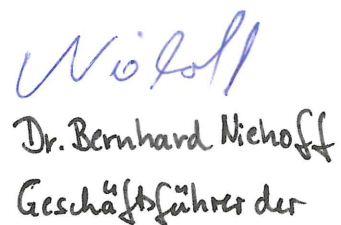 Niehoff
Dr. Bernhard Niehoff
Geschäftsführer der